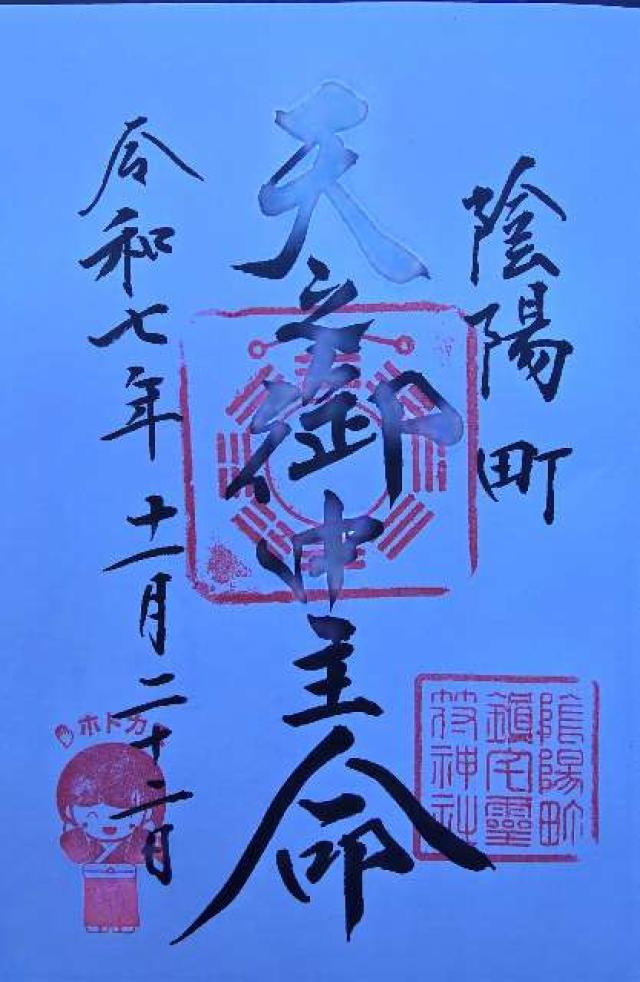 陰陽町
天之御中主命
令和七年十一月二十二日
陰陽町
鎮宅靈
符神社
ホトカミ